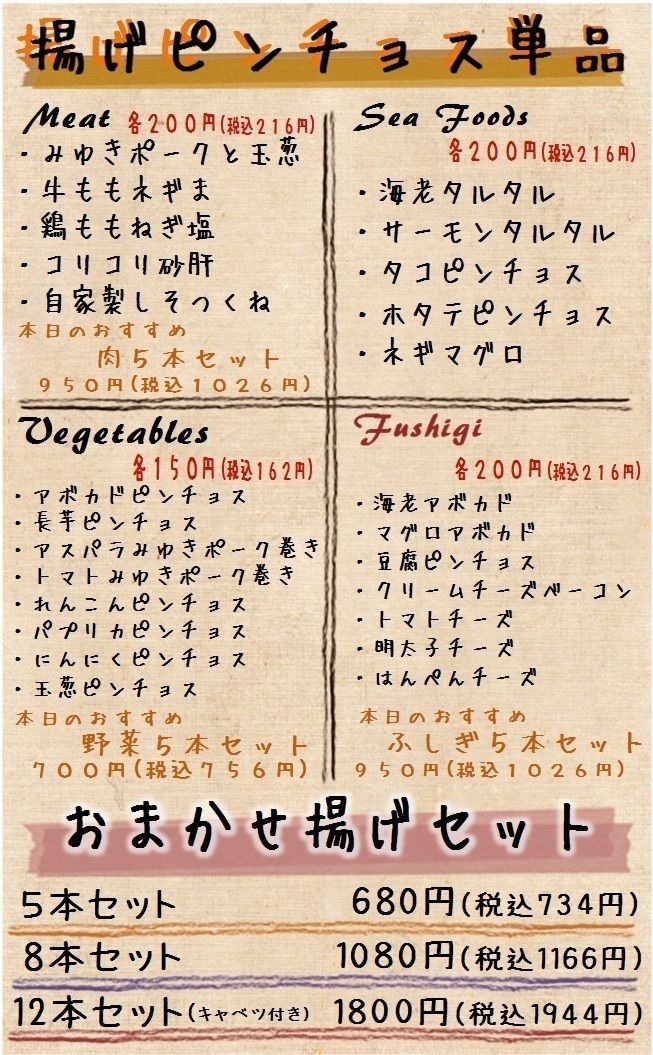 揚げピンチョス単品
Meat 各200円(税込216円)
・みゆきポークと玉葱
・牛ももネギま
・鶏ももねぎ塩
・コリコリ砂肝
・自家製しそつくね
本日のおすすめ
肉5本セット
950円(税込1026円)
Sea Foods
各200円(税込216円)
・海老タルタル
・サーモンタルタル
・タコピンチョス
・ホタテピンチョス
・ネギマグロ
Vegetables
各150円(税込162円)
・アボカドピンチョス
・長芋ピンチョス
・アスパラみゆきポーク巻き
・トマトみゆきポーク巻き
・れんこんピンチョス
・パプリカピンチョス
・にんにくピンチョス
・玉葱ピンチョス
本日のおすすめ
野菜5本セット
700円(税込756円)
Fushigi
各200円(税込216円)
・海老アボカド
・マグロアボカド
・豆腐ピンチョス
・クリームチーズベーコン
・トマトチーズ
・明太子チーズ
・はんぺんチーズ
本日のおすすめ
ふしぎ5本セット
950円(税込1026円)
おまかせ揚げセット
5本セット 680円(税込734円)
8本セット 1080円(税込1166円)
12本セット(キャベツ付き) 1800円(税込1944円)